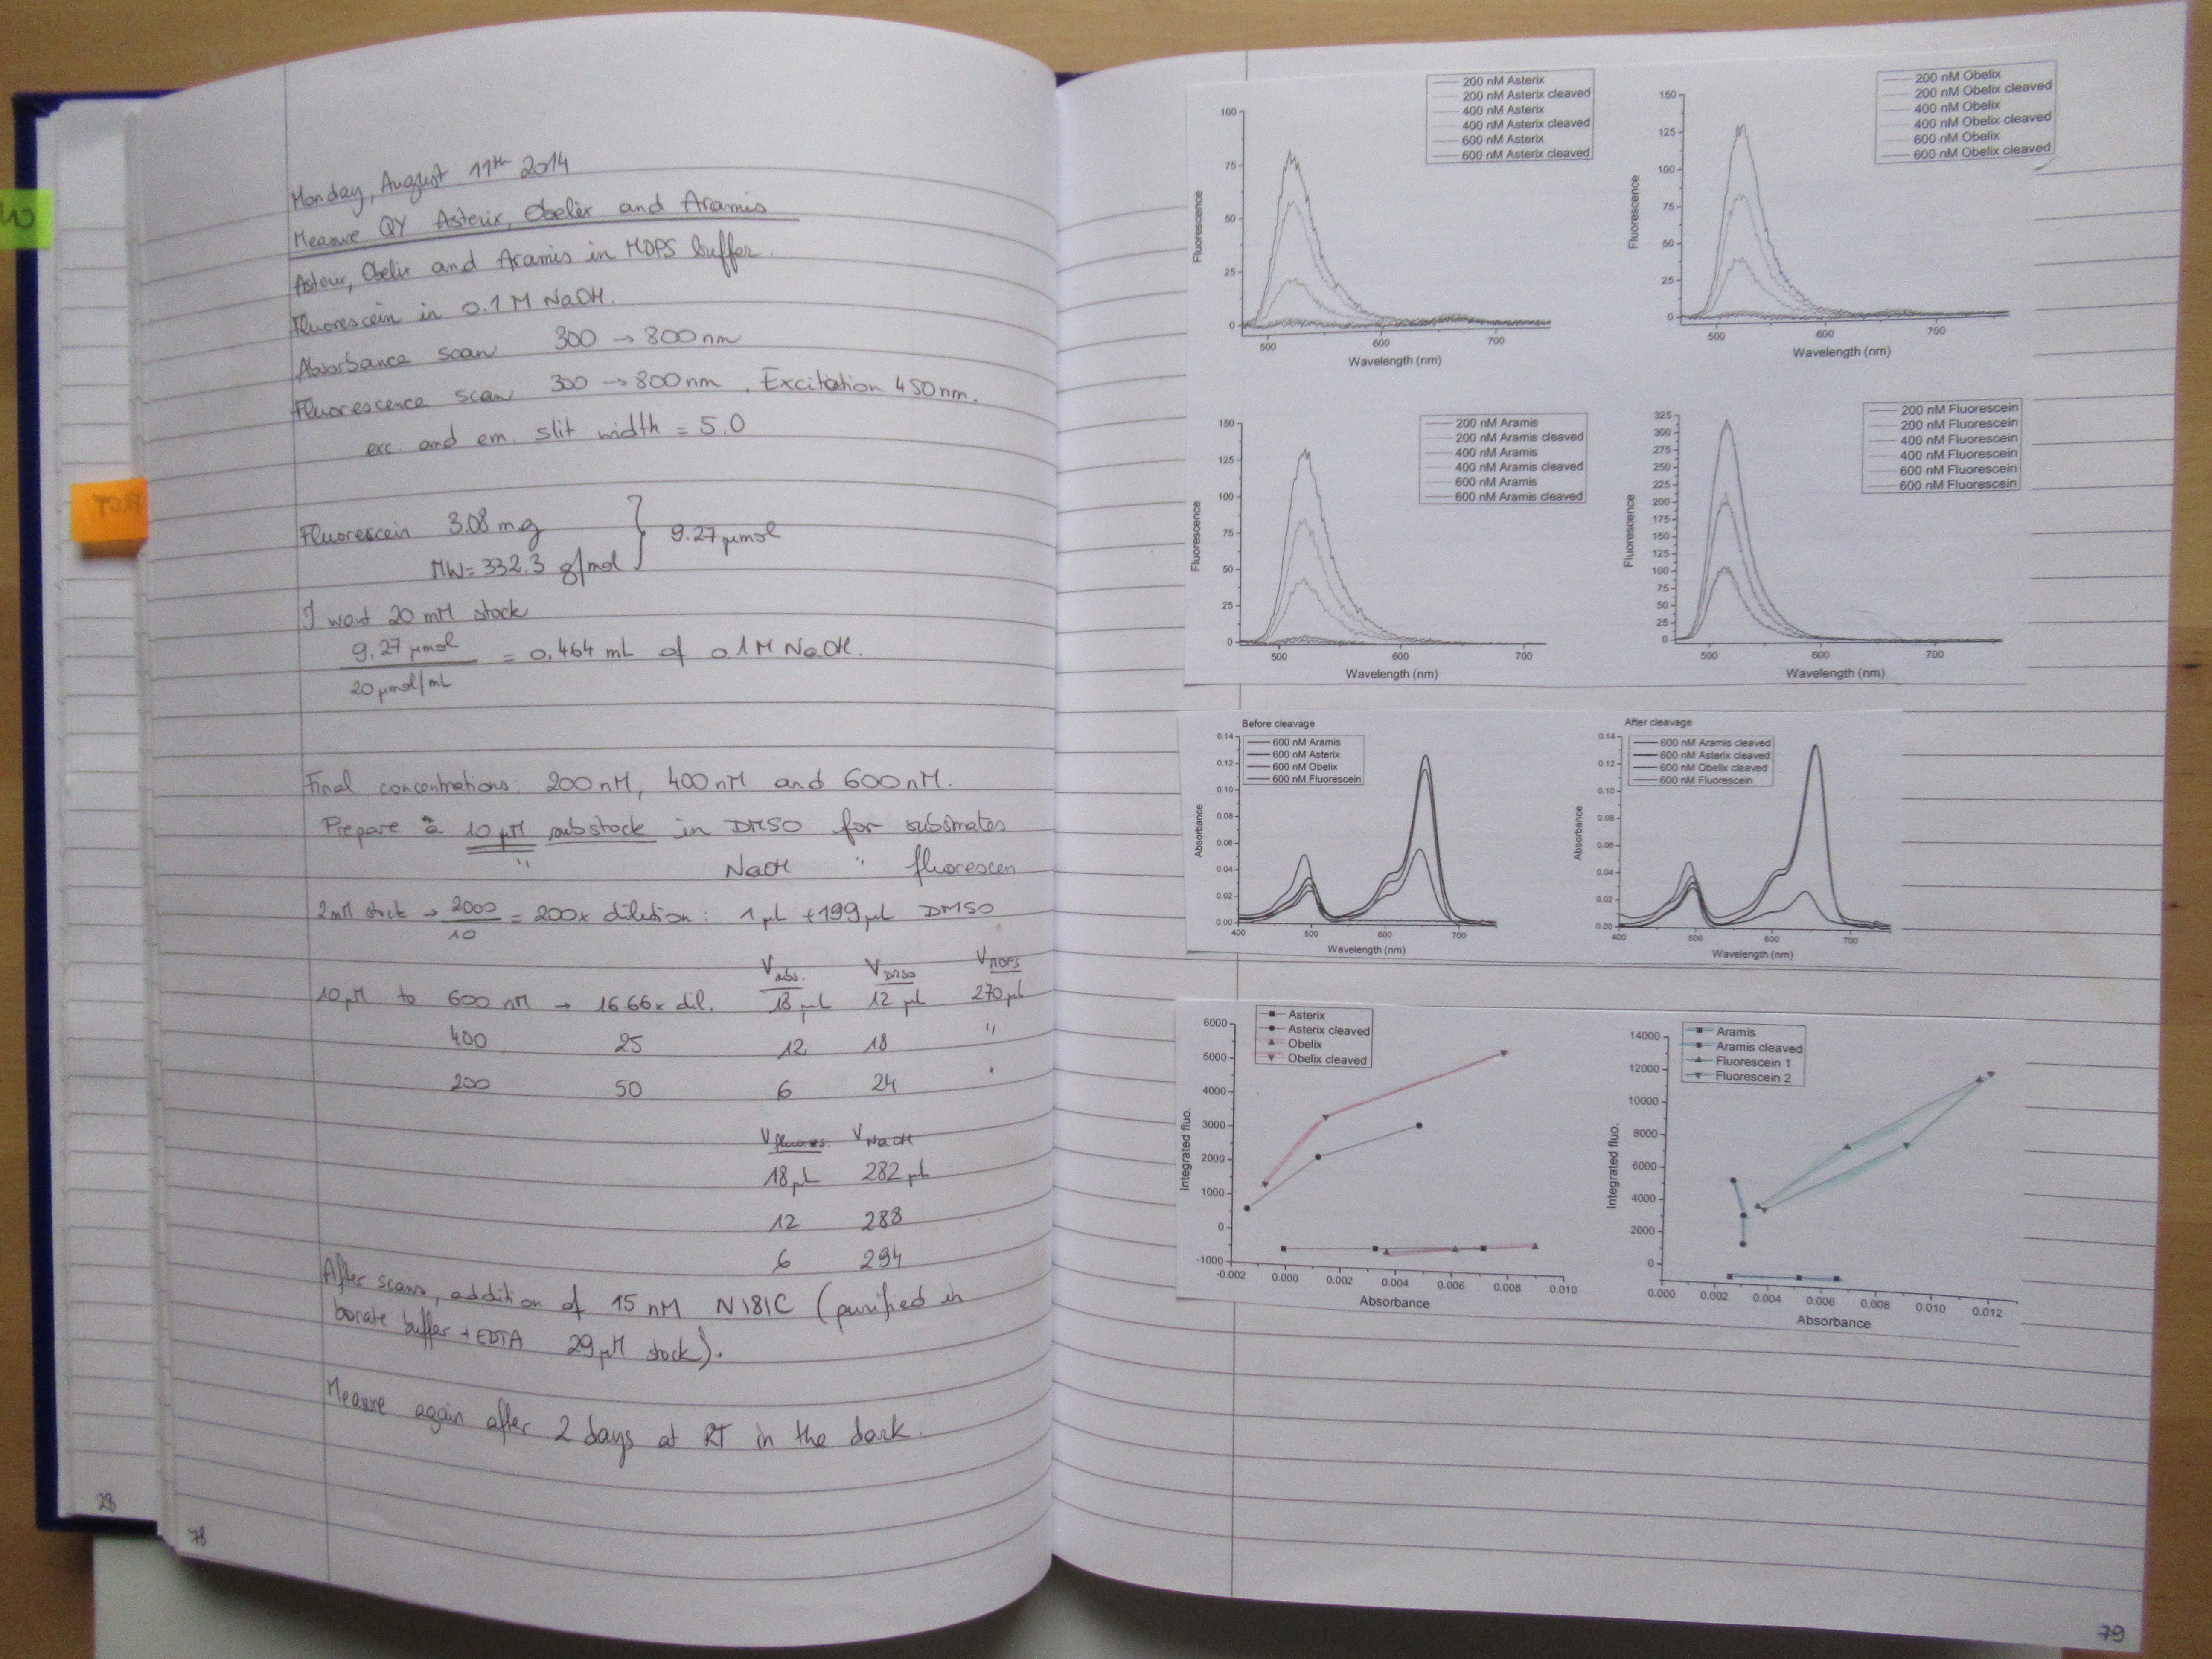 Monday, August 11th 2014
Measure QY Asterix, Obelix and Aramis
Asterix, Obelix and Aramis in MOPS buffer.
Fluorescein in 0.1 M NaOH.
Absorbance scan 300 → 800 nm
Fluorescence scan 300 → 800 nm. Excitation 450 nm.
exc. and em. slit width = 5.0
Fluorescein 3.08 mg
MW = 332.3 g/mol } 9.27 µmol
I want 20 mM stock
9.27 µmol
20 µmol/mL
= 0.464 mL of 0.1 M NaOH.
Final concentrations: 200 nM, 400 nM and 600 nM.
Prepare a 10 µM substock in DMSO for substrates
" NaOH " fluorescein
2 mM stock → 2000/10 = 200x dilution: 1 µL + 199 µL DMSO
V subs. V DMSO V MOPS
10 µM to 600 nM → 16.66x dil. 18 µL 12 µL 270 µL
400 25 12 18 "
200 50 6 24 "
V fluores. V NaOH
18 µL 282 µL
12 288
6 294
After scans, addition of 15 nM N181C (purified in
borate buffer + EDTA 29 µM stock).
Measure again after 2 days at RT in the dark.
28
78
200 nM Asterix
200 nM Asterix cleaved
400 nM Asterix
400 nM Asterix cleaved
600 nM Asterix
600 nM Asterix cleaved
100
75
50
25
0
Fluorescence
500 600 700
Wavelength (nm)
200 nM Obelix
200 nM Obelix cleaved
400 nM Obelix
400 nM Obelix cleaved
600 nM Obelix
600 nM Obelix cleaved
150
125
100
75
50
25
0
Fluorescence
500 600 700
Wavelength (nm)
200 nM Aramis
200 nM Aramis cleaved
400 nM Aramis
400 nM Aramis cleaved
600 nM Aramis
600 nM Aramis cleaved
150
125
100
75
50
25
0
Fluorescence
500 600 700
Wavelength (nm)
200 nM Fluorescein
200 nM Fluorescein
400 nM Fluorescein
400 nM Fluorescein
600 nM Fluorescein
600 nM Fluorescein
325
300
275
250
225
200
175
150
125
100
75
50
25
0
Fluorescence
500 600 700
Wavelength (nm)
Before cleavage
600 nM Aramis
600 nM Asterix
600 nM Obelix
600 nM Fluorescein
0.14
0.12
0.10
0.08
0.06
0.04
0.02
0.00
Absorbance
400 500 600 700
Wavelength (nm)
After cleavage
600 nM Aramis cleaved
600 nM Asterix cleaved
600 nM Obelix cleaved
600 nM Fluorescein
0.14
0.12
0.10
0.08
0.06
0.04
0.02
0.00
Absorbance
400 500 600 700
Wavelength (nm)
Asterix
Asterix cleaved
Obelix
Obelix cleaved
6000
5000
4000
3000
2000
1000
0
-1000
Integrated fluo.
-0.002 0.000 0.002 0.004 0.006 0.008 0.010
Absorbance
Aramis
Aramis cleaved
Fluorescein 1
Fluorescein 2
14000
12000
10000
8000
6000
4000
2000
0
Integrated fluo.
0.000 0.002 0.004 0.006 0.008 0.010 0.012
Absorbance
79